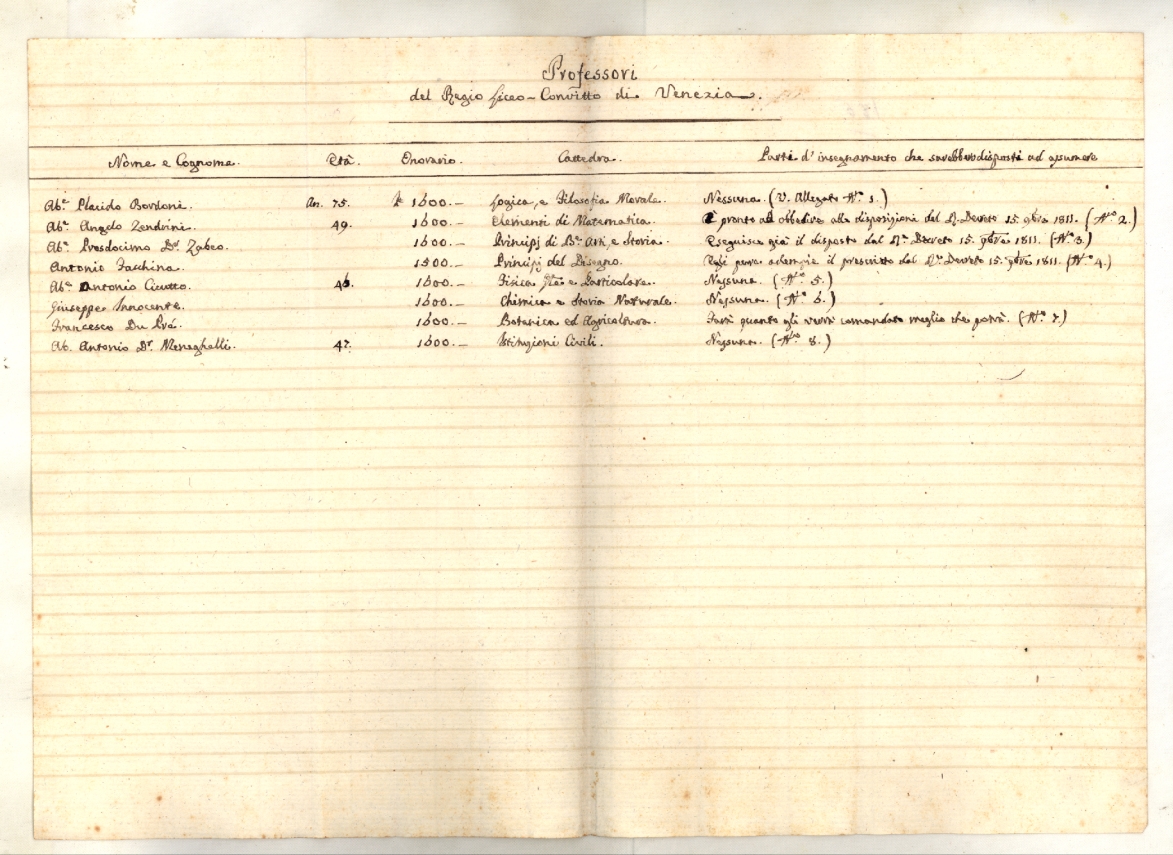 Professori
del Regio Liceo-Convitto di Venezia.
Nome e Cognome. Età. Onorario. Cattedra. Parti d'insegnamento che sarebbero disposti ad assumere
Ab.e Placido Bordoni. An. 75. 1600.— Logica, e Filosofia Morale. Nessuna. (V. Allegato N.o 1.)
Ab.e Angelo Zendrini. 49. 1600.— Elementi di Matematica. È pronto ad obbedire alla disposizione del R. Decreto 15. 9bre 1811. (N.o 2.)
Ab.e Prosdocimo D.r Zabeo. 1600.— Principj di B.e Arti, e Storia. Eseguisce già il disposto dal R.o Decreto 15. 9bre 1811. (N.o 3.)
Antonio Facchina. 1500.— Principj del Disegno. Egli pure adempie il prescritto dal R.o Decreto 15. 9bre 1811. (N.o 4.)
Ab.e Antonio Cicutto. 46. 1600.— Fisica Gle e Particolare. Nessuna. (N.o 5.)
Giuseppe Innocente. 1600.— Chimica e Storia Naturale. Nessuna. (N.o 6.)
Francesco Du Prè. 1600.— Botanica ed Agricoltura. Farà quanto gli verrà comandato meglio che potrà. (N.o 7.)
Ab. Antonio D.r Meneghelli. 47. 1600.— Istituzioni Civili. Nessuna. (N.o 8.)